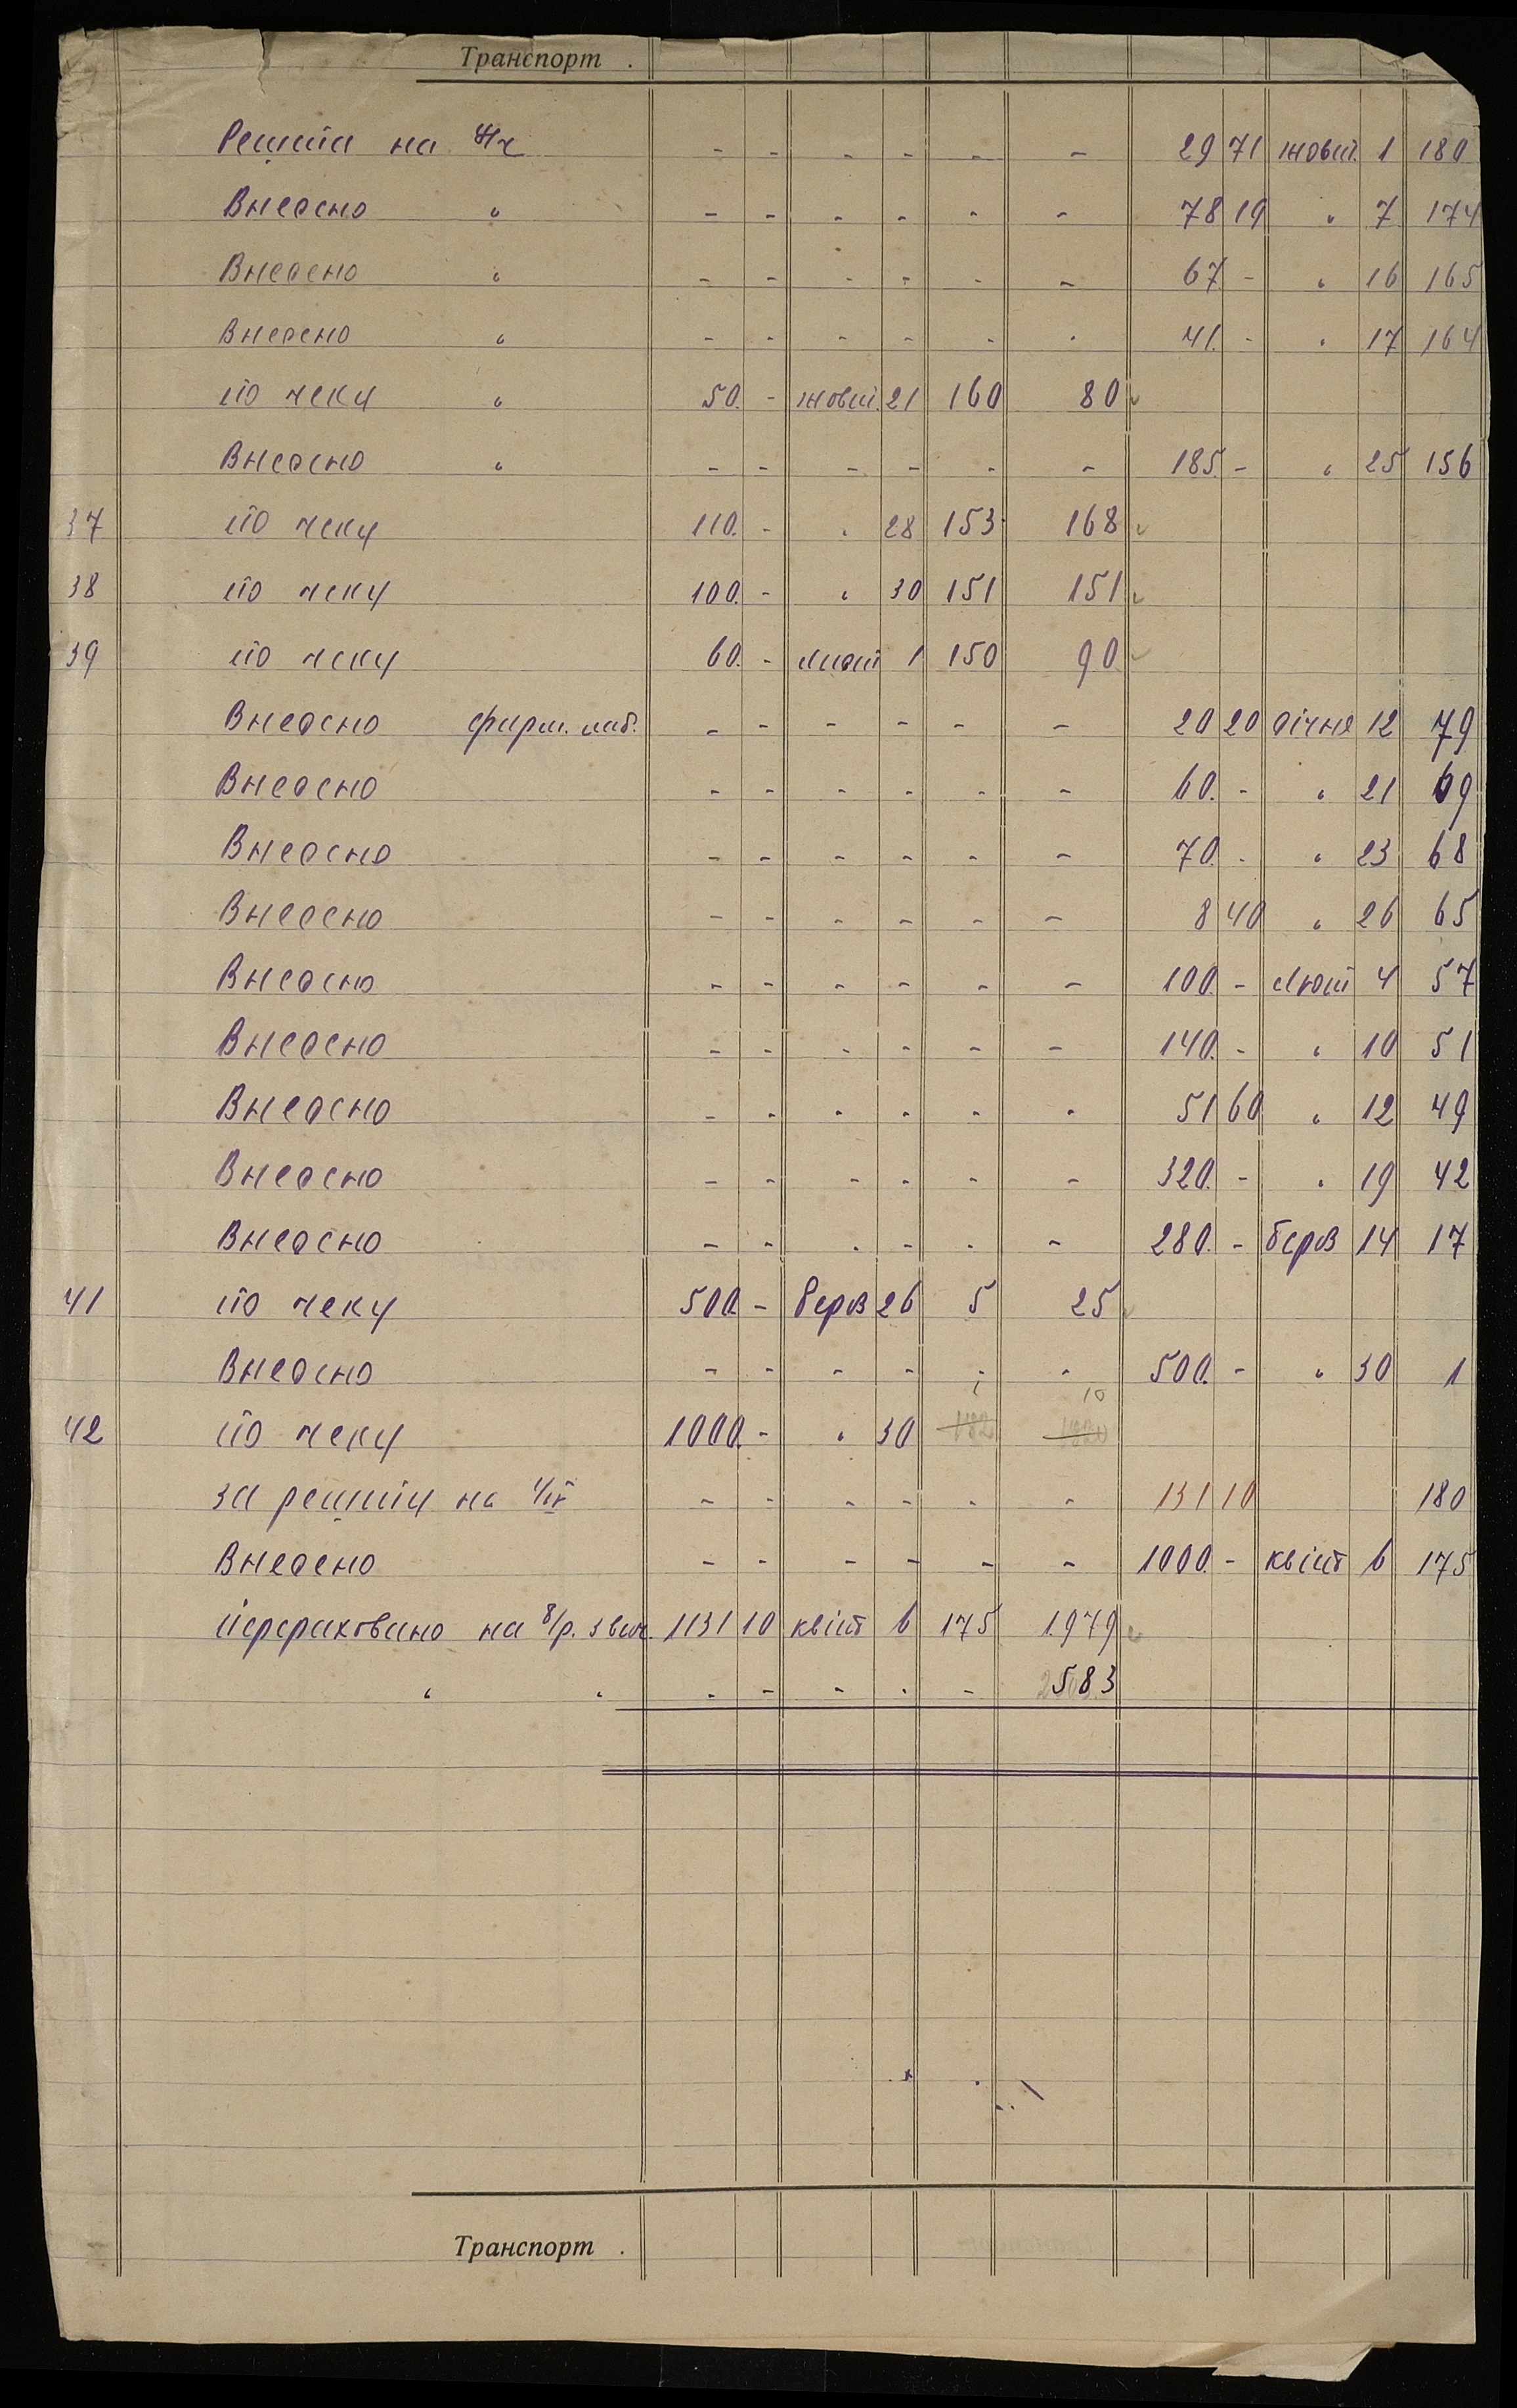 Транспорт .
Решта на - - - - - - 29 71 жовт. 1 180
Внесено " - - - - - - 78 19 " 7 174
Внесено " - - - - - - 67. - " 16 165
Внесено " - - - - - - 41. - " 17 164
по чеку " 50. - жовт. 21 160 80
Внесено " - - - - - - 185. - " 25 156
37 по чеку 110. - " 28 153 168
38 по чеку 100. - " 30 151 151
39 по чеку 60. - лист 1 150 90
Внесено фарм. лаб. - - - - - - 20 20 січня 12 79
Внесено - - - - - - 60. - " 21 69
Внесено - - - - - - 70. - " 23 68
Внесено - - - - - - 8 40 " 26 65
Внесено - - - - - - 100. - Лют 4 57
Внесено - - - - - - 140. - " 10 51
Внесено - - - - - - 51 60 " 12 49
Внесено - - - - - - 320. - " 19 42
Внесено - - - - - - 280. - берез 14 17
41 по чеку 500. - берез 26 5 25
Внесено - - - - - - 500. - " 30 1
42 по чеку 1000. - " 30 10
за решту на 1/IV - - - - - - 131 10 180
Внесено - - - - - - 1000. - квіт 6 175
перераховано на 1131 10 квіт 6 175 1979
" " - - - - - 583
Транспорт .